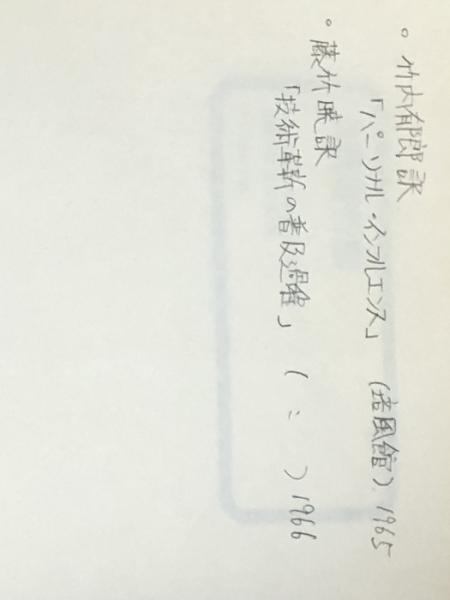 。竹内郁郎訳
「パーソナル・インフルエンス」 (培風館) 1965
。藤竹暁訳
「技術革新の普及過程」 ( 〃 ) 1966